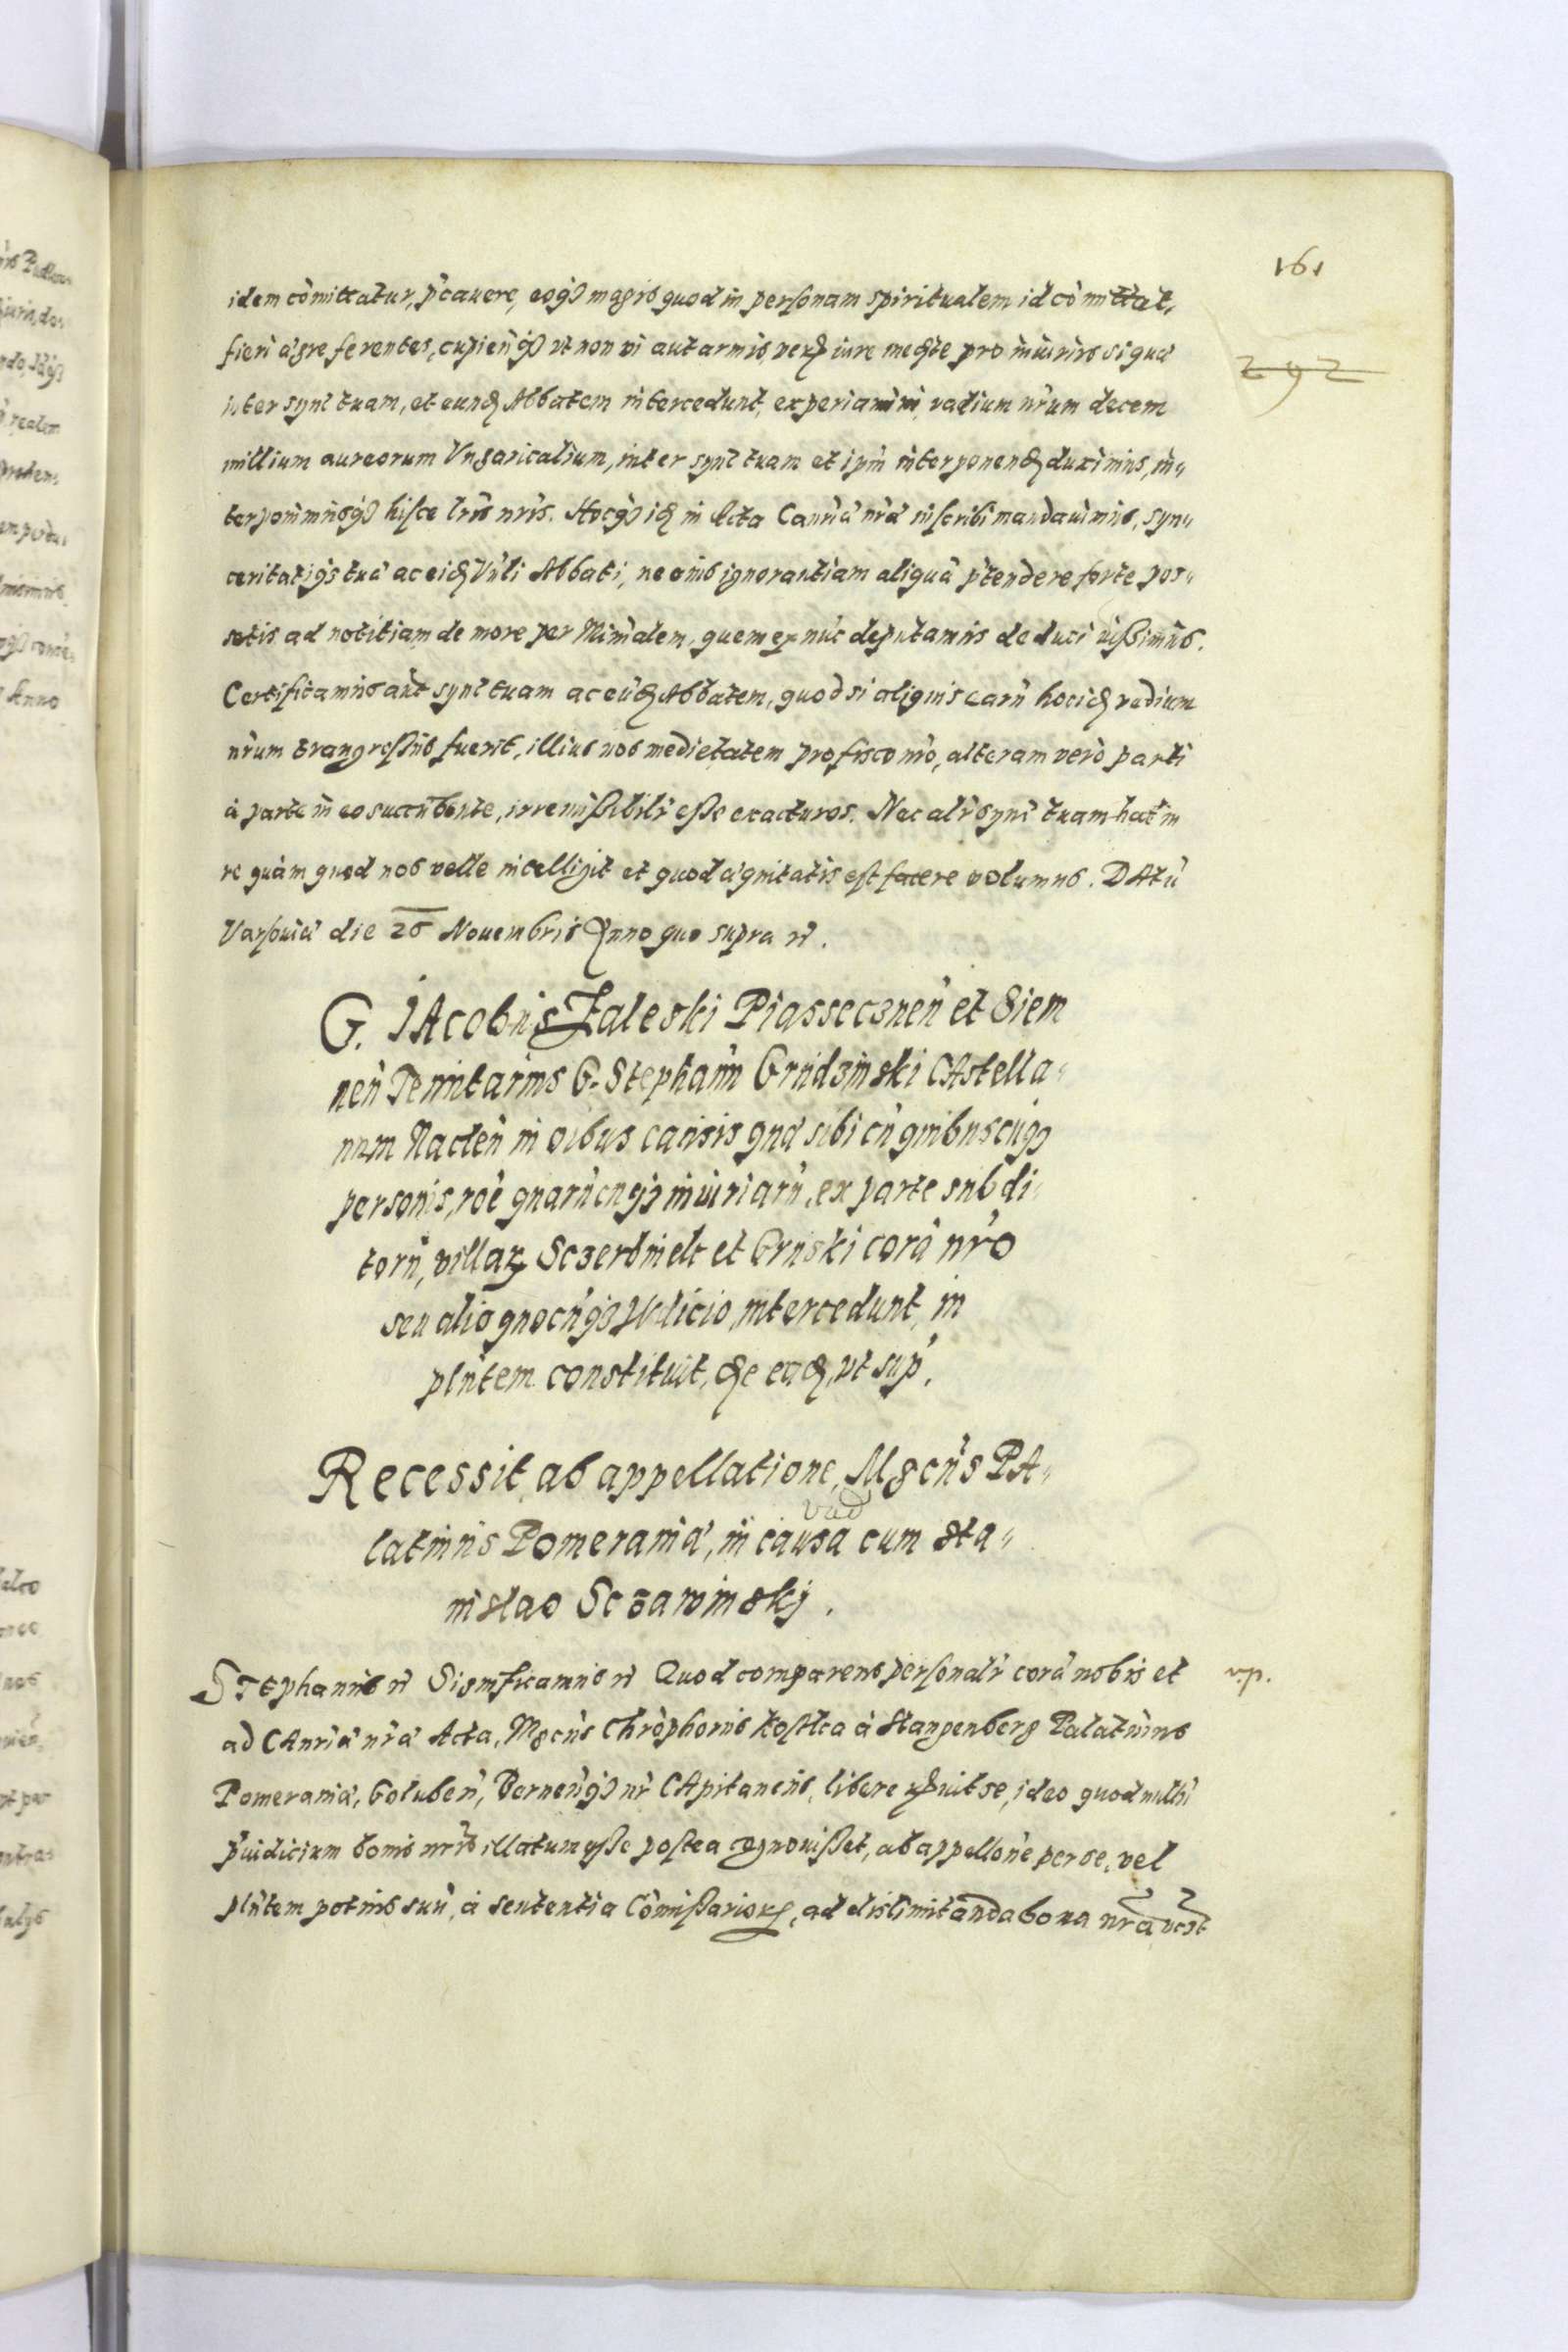 161
292
idem comittatur, pcauere, eoq3 magis quod in personam spiritualem id comittat,
fieri aegre ferentes, cupienq3 vt non vi aut armis, iure mediate pro iniuriis si quae
inter synt tuam, et eund Abbatem intercedunt, experiamini, vadium nrum decem
millium aureorum Vngaricalium, inter synt tuam et ipm interponend duximus, in„
terponimusq3 hisce lris nris. Hocq3 id in Acta Canria nra inscribi mandauimus, syn„
ceritatiq3 tuae ac eid Vnli Abbati, ne eius ignorantiam aliqua ptendere forte pos„
setis ad notitiam de more per Minalem, quem ex nuc deputamus deduci iussimus.
Certificamus aut synt tuam ac eud Abbatem, quod si aliquis earu hoc id vadium
nrum trangressus fuerit, illius nos medietatem pro fisco nro, alteram vero parti
a parte in eo succubente, irremissibilr esse exacturos. Nec alr synt tuam hac in
re quam quod nos velle intelligit et quod aequitatis est facere volumus. DAtu
Varsouiae die 26 Nouembris Anno quo supra rt.
G. IAcobus Zaleski Piasseczneń et Siem
neń Tenutarius G. Stephanu Grudzinski CAstella„
num Nacleń in oibus causis quae sibi cu quibuscuq3
personis, roe quarucuq3 iniuriaru, ex parte subdi„
toru, villar Sczerbin et Gruski cora nro
seu alio quocuq3 Iudicio, intercedunt, in
plntem constituit, de ead, vt sup.
Recessit ab appellatione, Mgcus PA„
vad
latinus Pomeraniae, in causa cum Sta„
nislao Sczawinskj.
STEphanus rt Significamus rt Quod comparens personalr cora nobis et
v.p.
ad CAnria nra Acta, Mgcus Chrophorus Kostka a Stangenberg Palatinus
Pomeraniae, Golubeń, Berneńq3 nr CApitaneus, libere se, ideo quod nullu
piudicium bonis nris illatum esse postea cognouisset, ab appellone per se, vel
plntem potius suu, a sententia Comissarior, ad dislimitanda bona nra